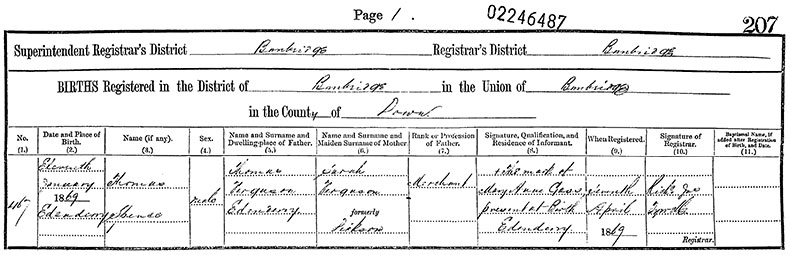 Page 1. 02246487 207
Superintendent Registrar's District Banbridge Registrar's District Banbridge
BIRTHS Registered in the District of Banbridge in the Union of Banbridge
in the County of Down
No. Date and Place of Birth. Name (if any). Sex. Name and Surname and Dwelling-place of Father. Name and Surname and Maiden Surname of Mother Rank or Profession of Father. Signature, Qualification, and Residence of Informant. When Registered. Signature of Registrar. Baptismal Name, if added after Registration of Birth, and Date.
(1.) (2.) (3.) (4.) (5.) (6.) (7.) (8.) (9.) (10.) (11.)
Eleventh Thomas Sarah + The mark of
January Thomas Ferguson Ferguson Merchant Mary Anne Cass
1869 male
467 Edenderry Edenderry formerly present at Birth April
Edenderry 1869 Registrar.